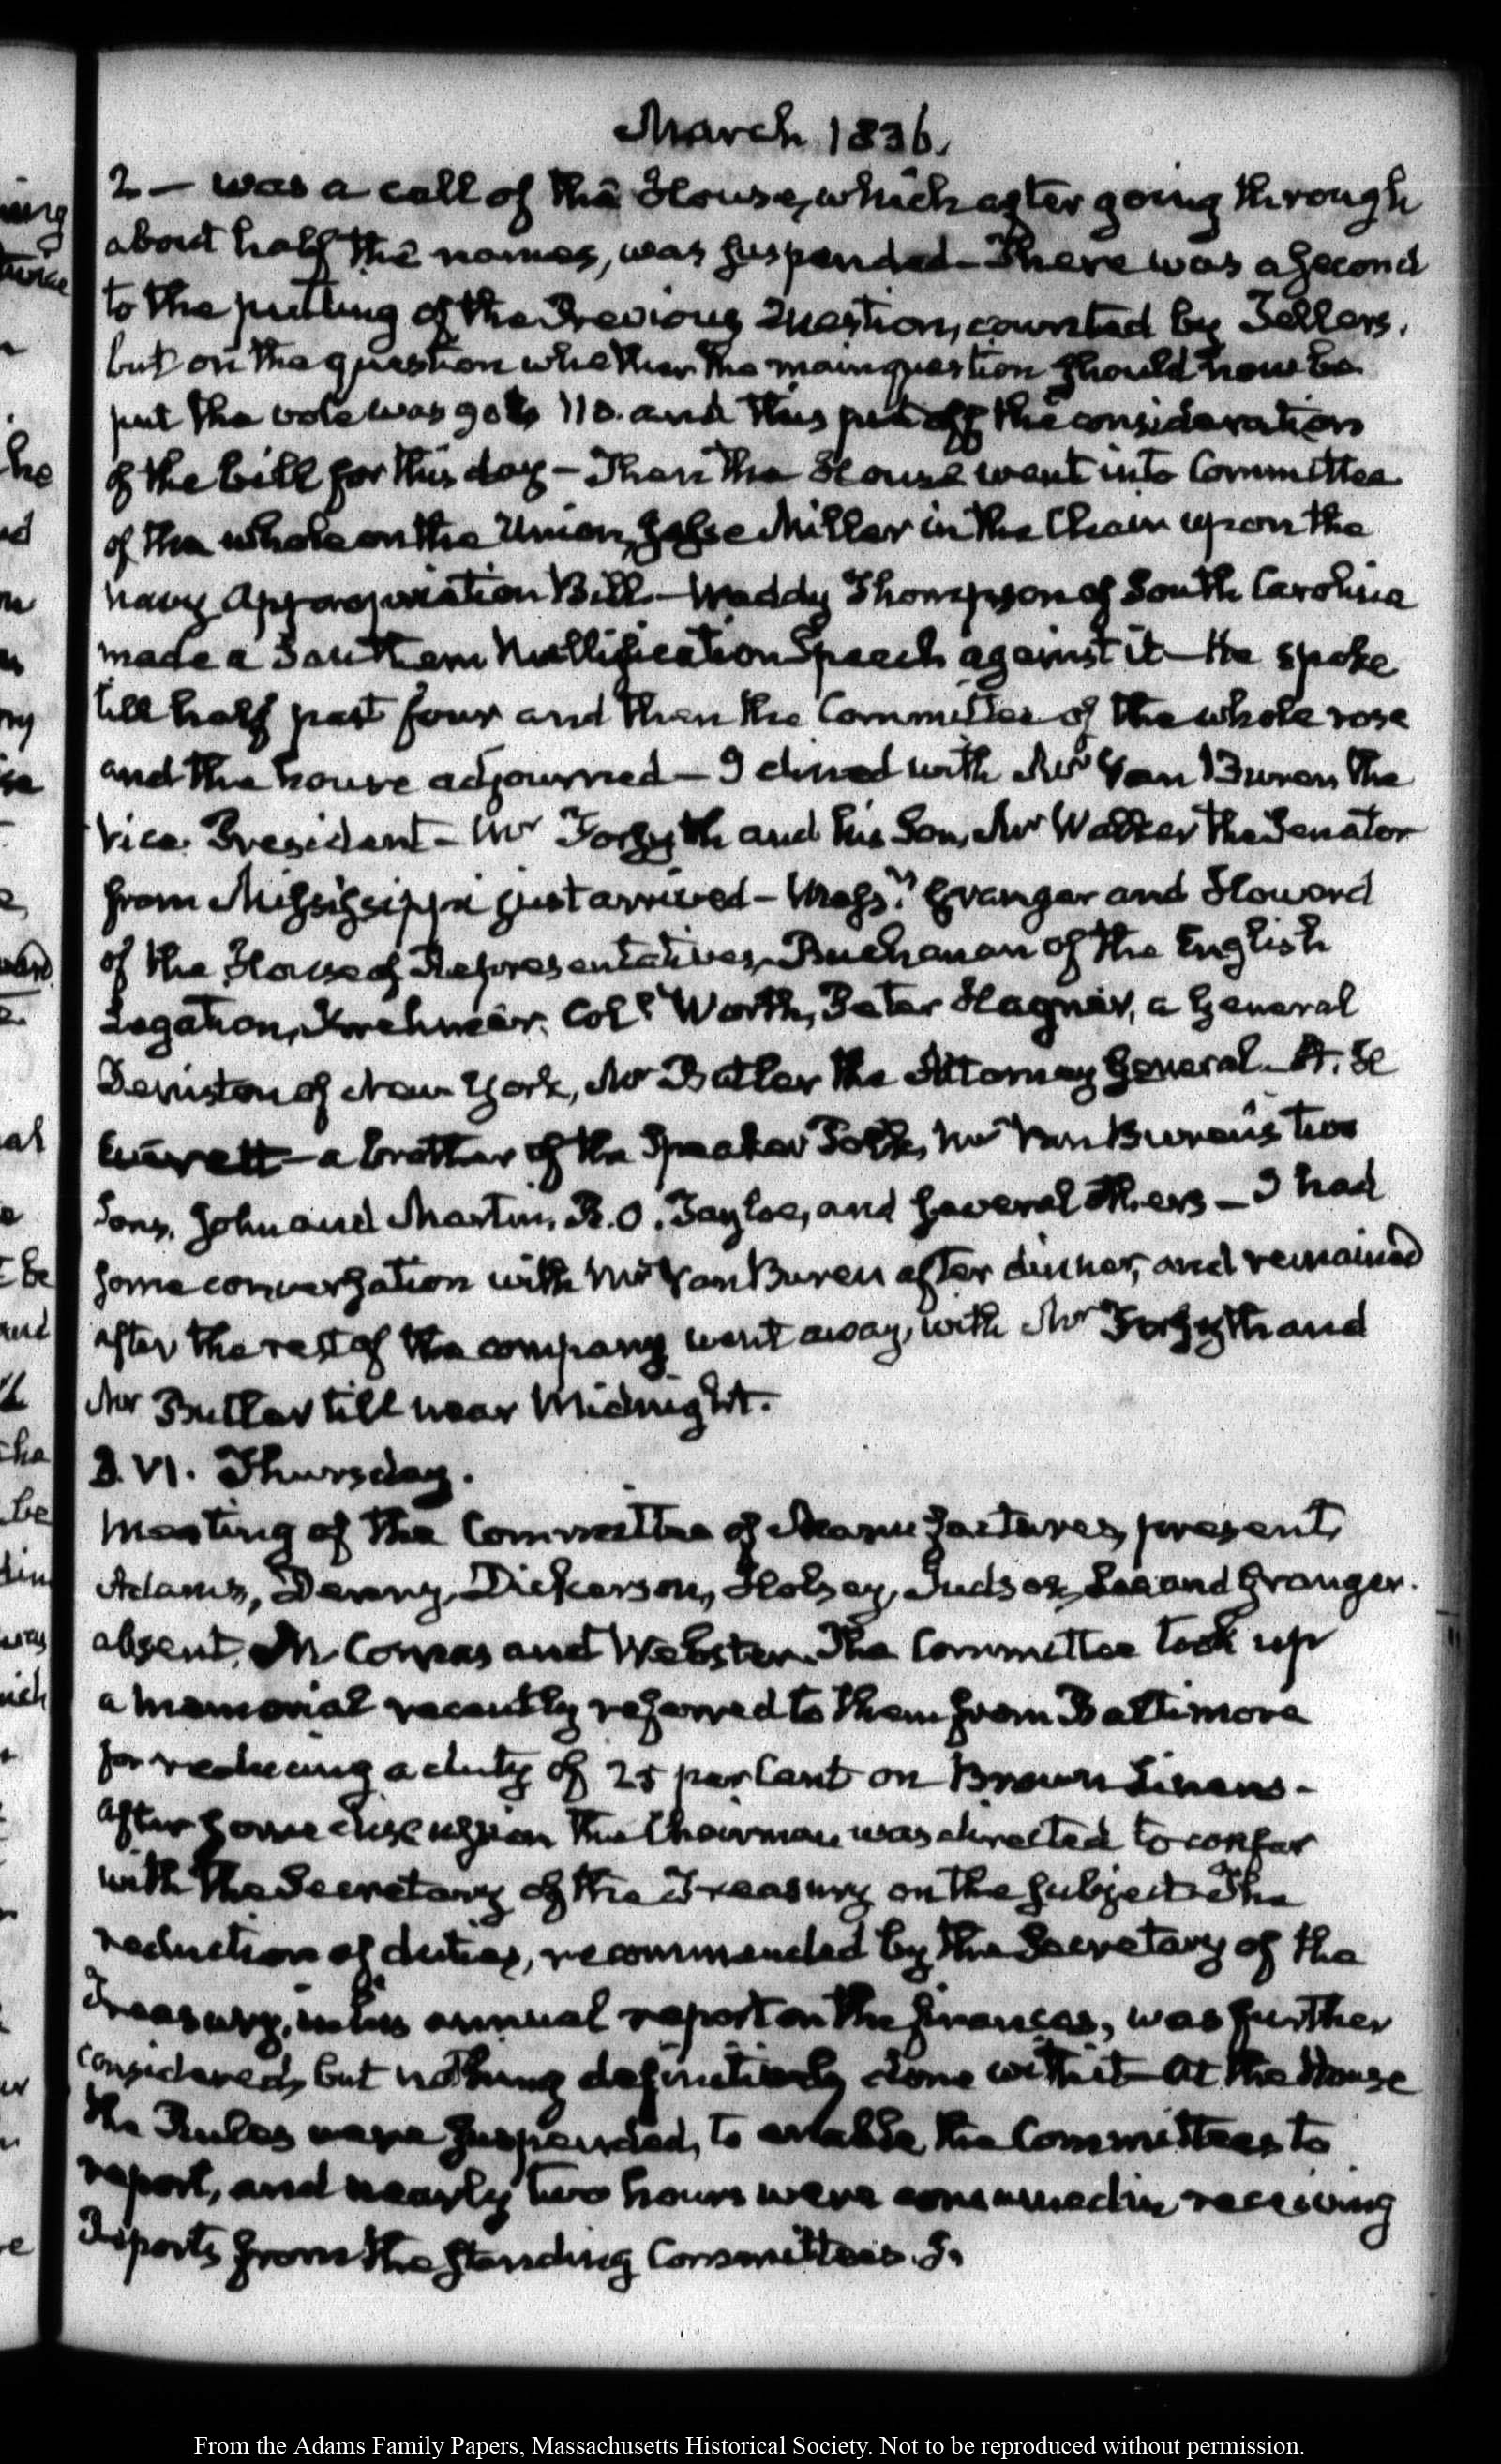 March 1836.
2 — was a call of the House, which after going through
about half the names, was suspended — There was a second
to the putting of the Previous Question, counted by Tellers,
but on the question whether the main question should now be
put the vote was 90 to 110. and this put off the consideration
of the bill for this day — Then the House went into Committee
of the whole on the Union, Jesse Miller in the Chair upon the
navy Appropriation Bill — Waddy Thompson of South Carolina
made a Southern Nullification Speech against it — He spoke
till half past four and then the Committee of the whole rose
and the house adjourned — I dined with Mr Van Buren the
Vice President — Mr Forsyth and his Son, Mr Walker the Senator
from Mississippi just arrived — Messrs. Granger and Howard
of the House of Representatives, Buchanan of the English
Legation, Krehmer, Coll. Worth, Peter Hagner, a General
of New York, Mr Butler the Attorney General — A. H.
Everett — a brother of the Speaker Polk, Mr Van Buren's two
Sons, John and Martin, B. O. Tayloe, and several others — I had
some conversation with Mr Van Buren after dinner, and remained
after the rest of the company went away, with Mr Forsyth and
Mr Butler till near Midnight.
3. VI. Thursday.
Meeting of the Committee of Manufactures, present,
Adams, Denny, Dickerson, Holsey, Judson, Lee and Granger.
absent, McComas and Webster. The Committee took up
a memorial recently referred to them from Baltimore
for reducing a duty of 25 per Cent on Brown Linens —
after some discussion the Chairman was directed to confer
with the Secretary of the Treasury on the subject — The
reduction of duties, recommended by the Secretary of the
Treasury, in his annual report on the finances, was further
considered, but nothing definitively done with it — At the House
the Rules were suspended, to enable the Committees to
report, and nearly two hours were consumed in receiving
Reports from the standing Committees. J.
From the Adams Family Papers, Massachusetts Historical Society. Not to be reproduced without permission.